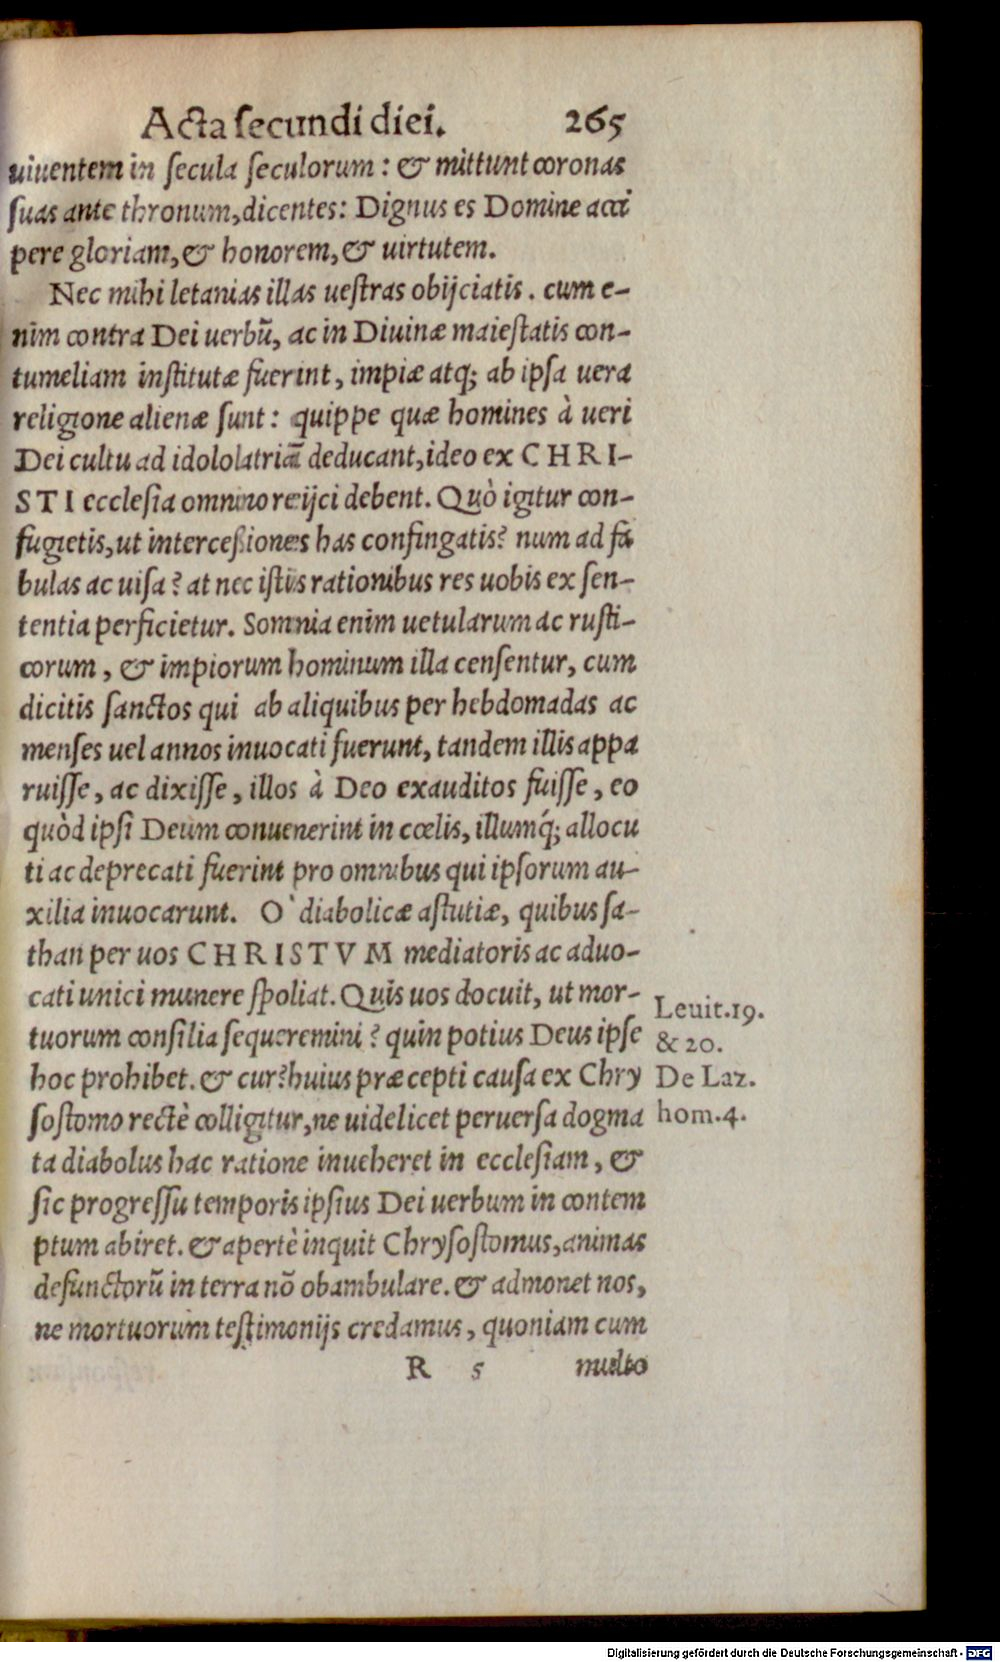 Acta ſecundi diei. 265
uiuentem in ſecula ſeculorum : & mittunt coronas
ſuas ante thronum, dicentes: Dignus es Domine acci
pere gloriam, & honorem, & uirtutem.
Nec mihi letanias illas ueſtras obijciatis. cum e-
nim contra Dei uerbū, ac in Diuinæ maieſtatis con-
tumeliam inſtitutæ fuerint, impiæ atq; ab ipſa uera
religione alienæ ſunt: quippe quæ homines à ueri
Dei cultu ad idololatriā deducant, ideo ex CHRI-
STI eccleſia omnino reijci debent. Quò igitur con-
fugietis, ut interceßiones has confingatis? num ad fa
bulas ac uiſa? at nec iſtis rationibus res uobis ex ſen-
tentia perficietur. Somnia enim uetularum ac ruſti-
corum, & impiorum hominum illa cenſentur, cum
dicitis ſanctos qui ab aliquibus per hebdomadas ac
menſes uel annos inuocati fuerunt, tandem illis appa
ruiſſe, ac dixiſſe, illos à Deo exauditos fuiſſe, eo
quòd ipſi Deum conuenerint in cœlis, illumq́; allocu
ti ac deprecati fuerint pro omnibus qui ipſorum au-
xilia inuocarunt. O` diabolicæ aſtutiæ, quibus ſa-
than per uos CHRISTVM mediatoris ac aduo-
cati unici munere ſpoliat. Quis uos docuit, ut mor-
tuorum conſilia ſequeremini? quin potius Deus ipſe
hoc prohibet. & cur? huius præcepti cauſa ex Chry
ſoſtomo rectè colligitur, ne uidelicet peruerſa dogma
ta diabolus hac ratione inueheret in eccleſiam, &
ſic progreſſu temporis ipſius Dei uerbum in contem
ptum abiret. & apertè inquit Chryſoſtomus, animas
defunctorū in terra nō obambulare. & admonet nos,
ne mortuorum teſtimonijs credamus, quoniam cum
R 5 multo
Leuit.19.
& 20.
De Laz.
hom.4.
Digitalisierung gefördert durch die Deutsche Forschungsgemeinschaft - DFG